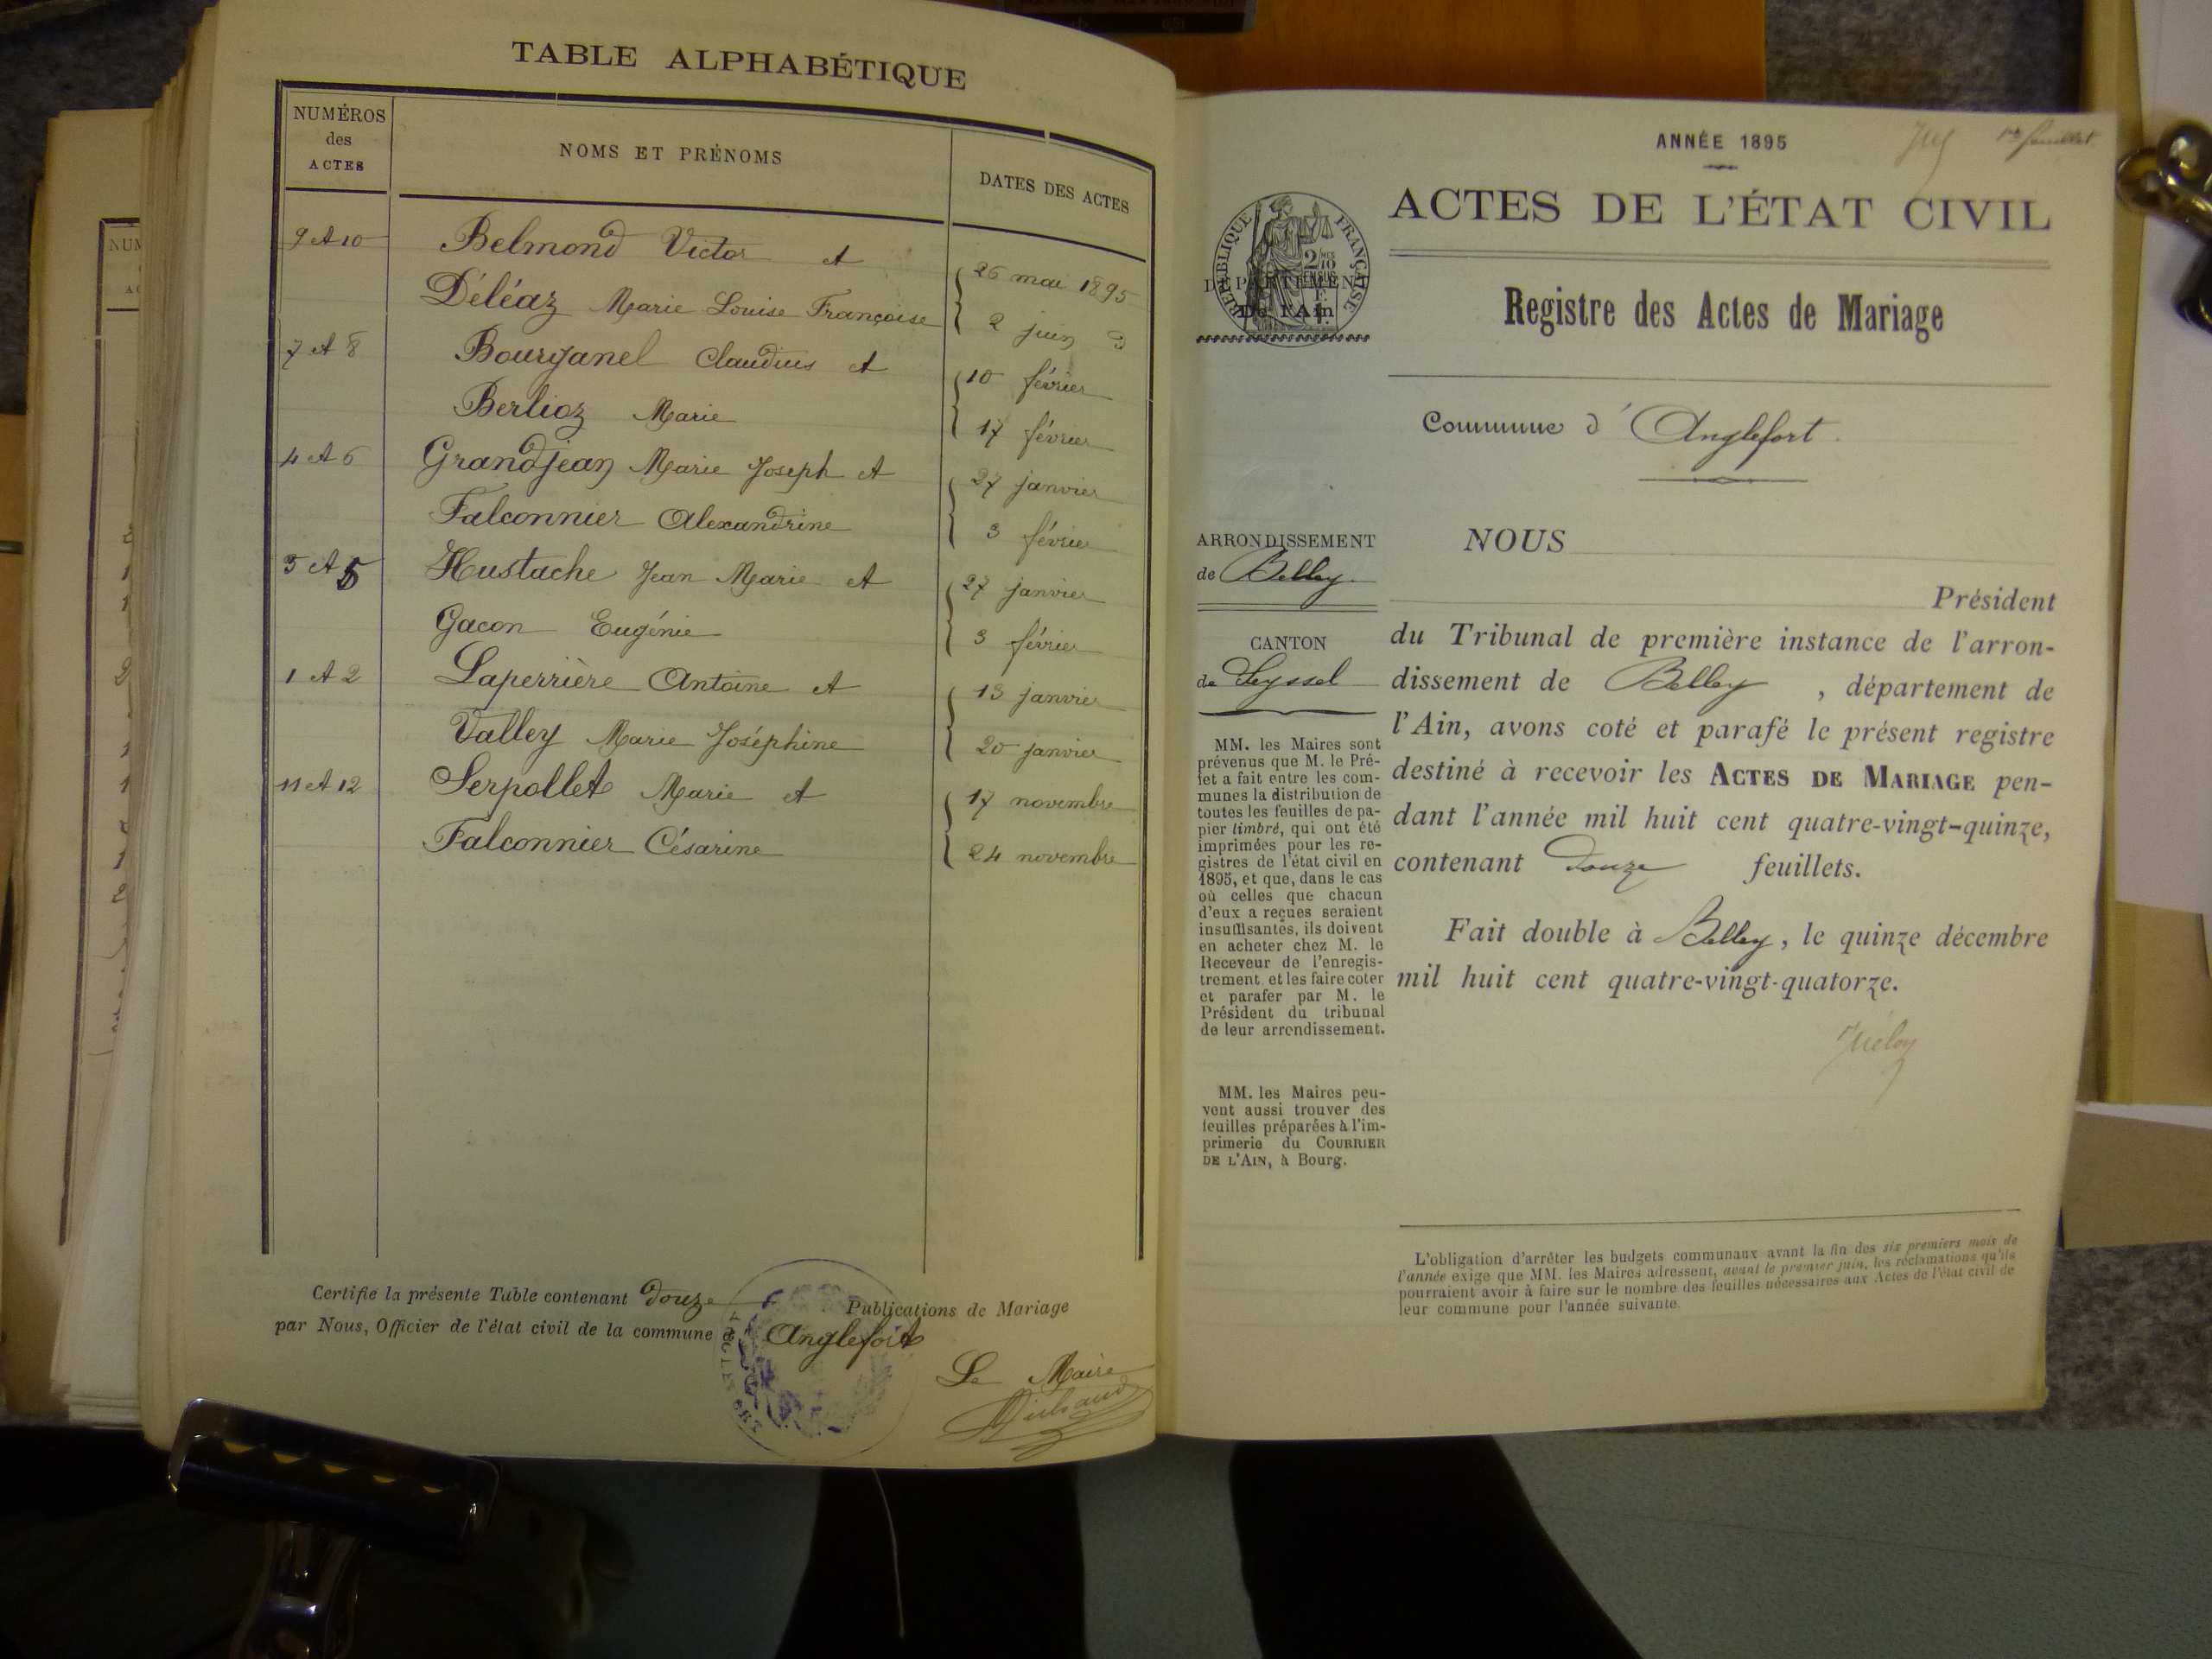 TABLE ALPHABÉTIQUE
NUMÉROS
des
ACTES
NOMS ET PRÉNOMS
DATES DES ACTES
9 et 10 Belmond Victor et 26 mai 1895
Déléaz Marie Louise Françoise 2 juin
7 et 8 Bourjanel Claudius et 10 février
Berlioz Marie 17 février
4 et 6 Grandjean Marie Joseph et 27 janvier
Falconnier Alexandrine 3 février
3 et 5 Hustache Jean Marie et 27 janvier
Gacon Eugénie 3 février
1 et 2 Laperrière Antoine et 13 janvier
Valley Marie Joséphine 20 janvier
11 et 12 Serpollet Marie et 17 novembre
Falconnier Césarine 24 novembre
Certifie la présente Table contenant douze Publications de Mariage
par Nous, Officier de l'état civil de la commune d' Anglefort
Le Maire
NUM
ANNÉE 1895
1er feuillet
ACTES DE L'ÉTAT CIVIL
RÉPUBLIQUE FRANÇAISE
DÉPARTEMENT
De l'Ain
Registre des Actes de Mariage
Commune d'Anglefort.
ARRONDISSEMENT
de Belley.
CANTON
de Seyssel
MM. les Maires sont
prévenus que M. le Pré-
fet a fait entre les com-
munes la distribution de
toutes les feuilles de pa-
pier timbré, qui ont été
imprimées pour les re-
gistres de l'état civil en
1895, et que, dans le cas
où celles que chacun
d'eux a reçues seraient
insuffisantes, ils doivent
en acheter chez M. le
Receveur de l'enregis-
trement, et les faire coter
et parafer par M. le
Président du tribunal
de leur arrondissement.
MM. les Maires peu-
vent aussi trouver des
feuilles préparées à l'im-
primerie du COURRIER
DE L'AIN, à Bourg.
NOUS
Président
du Tribunal de première instance de l'arron-
dissement de Belley, département de
l'Ain, avons coté et parafé le présent registre
destiné à recevoir les ACTES DE MARIAGE pen-
dant l'année mil huit cent quatre-vingt-quinze,
contenant Douze feuillets.
Fait double à Belley, le quinze décembre
mil huit cent quatre-vingt-quatorze.
L'obligation d'arrêter les budgets communaux avant la fin des six premiers mois de
l'année exige que MM. les Maires adressent, avant le premier juin, les réclamations qu'ils
pourraient avoir à faire sur le nombre des feuilles nécessaires aux Actes de l'état civil de
leur commune pour l'année suivante.